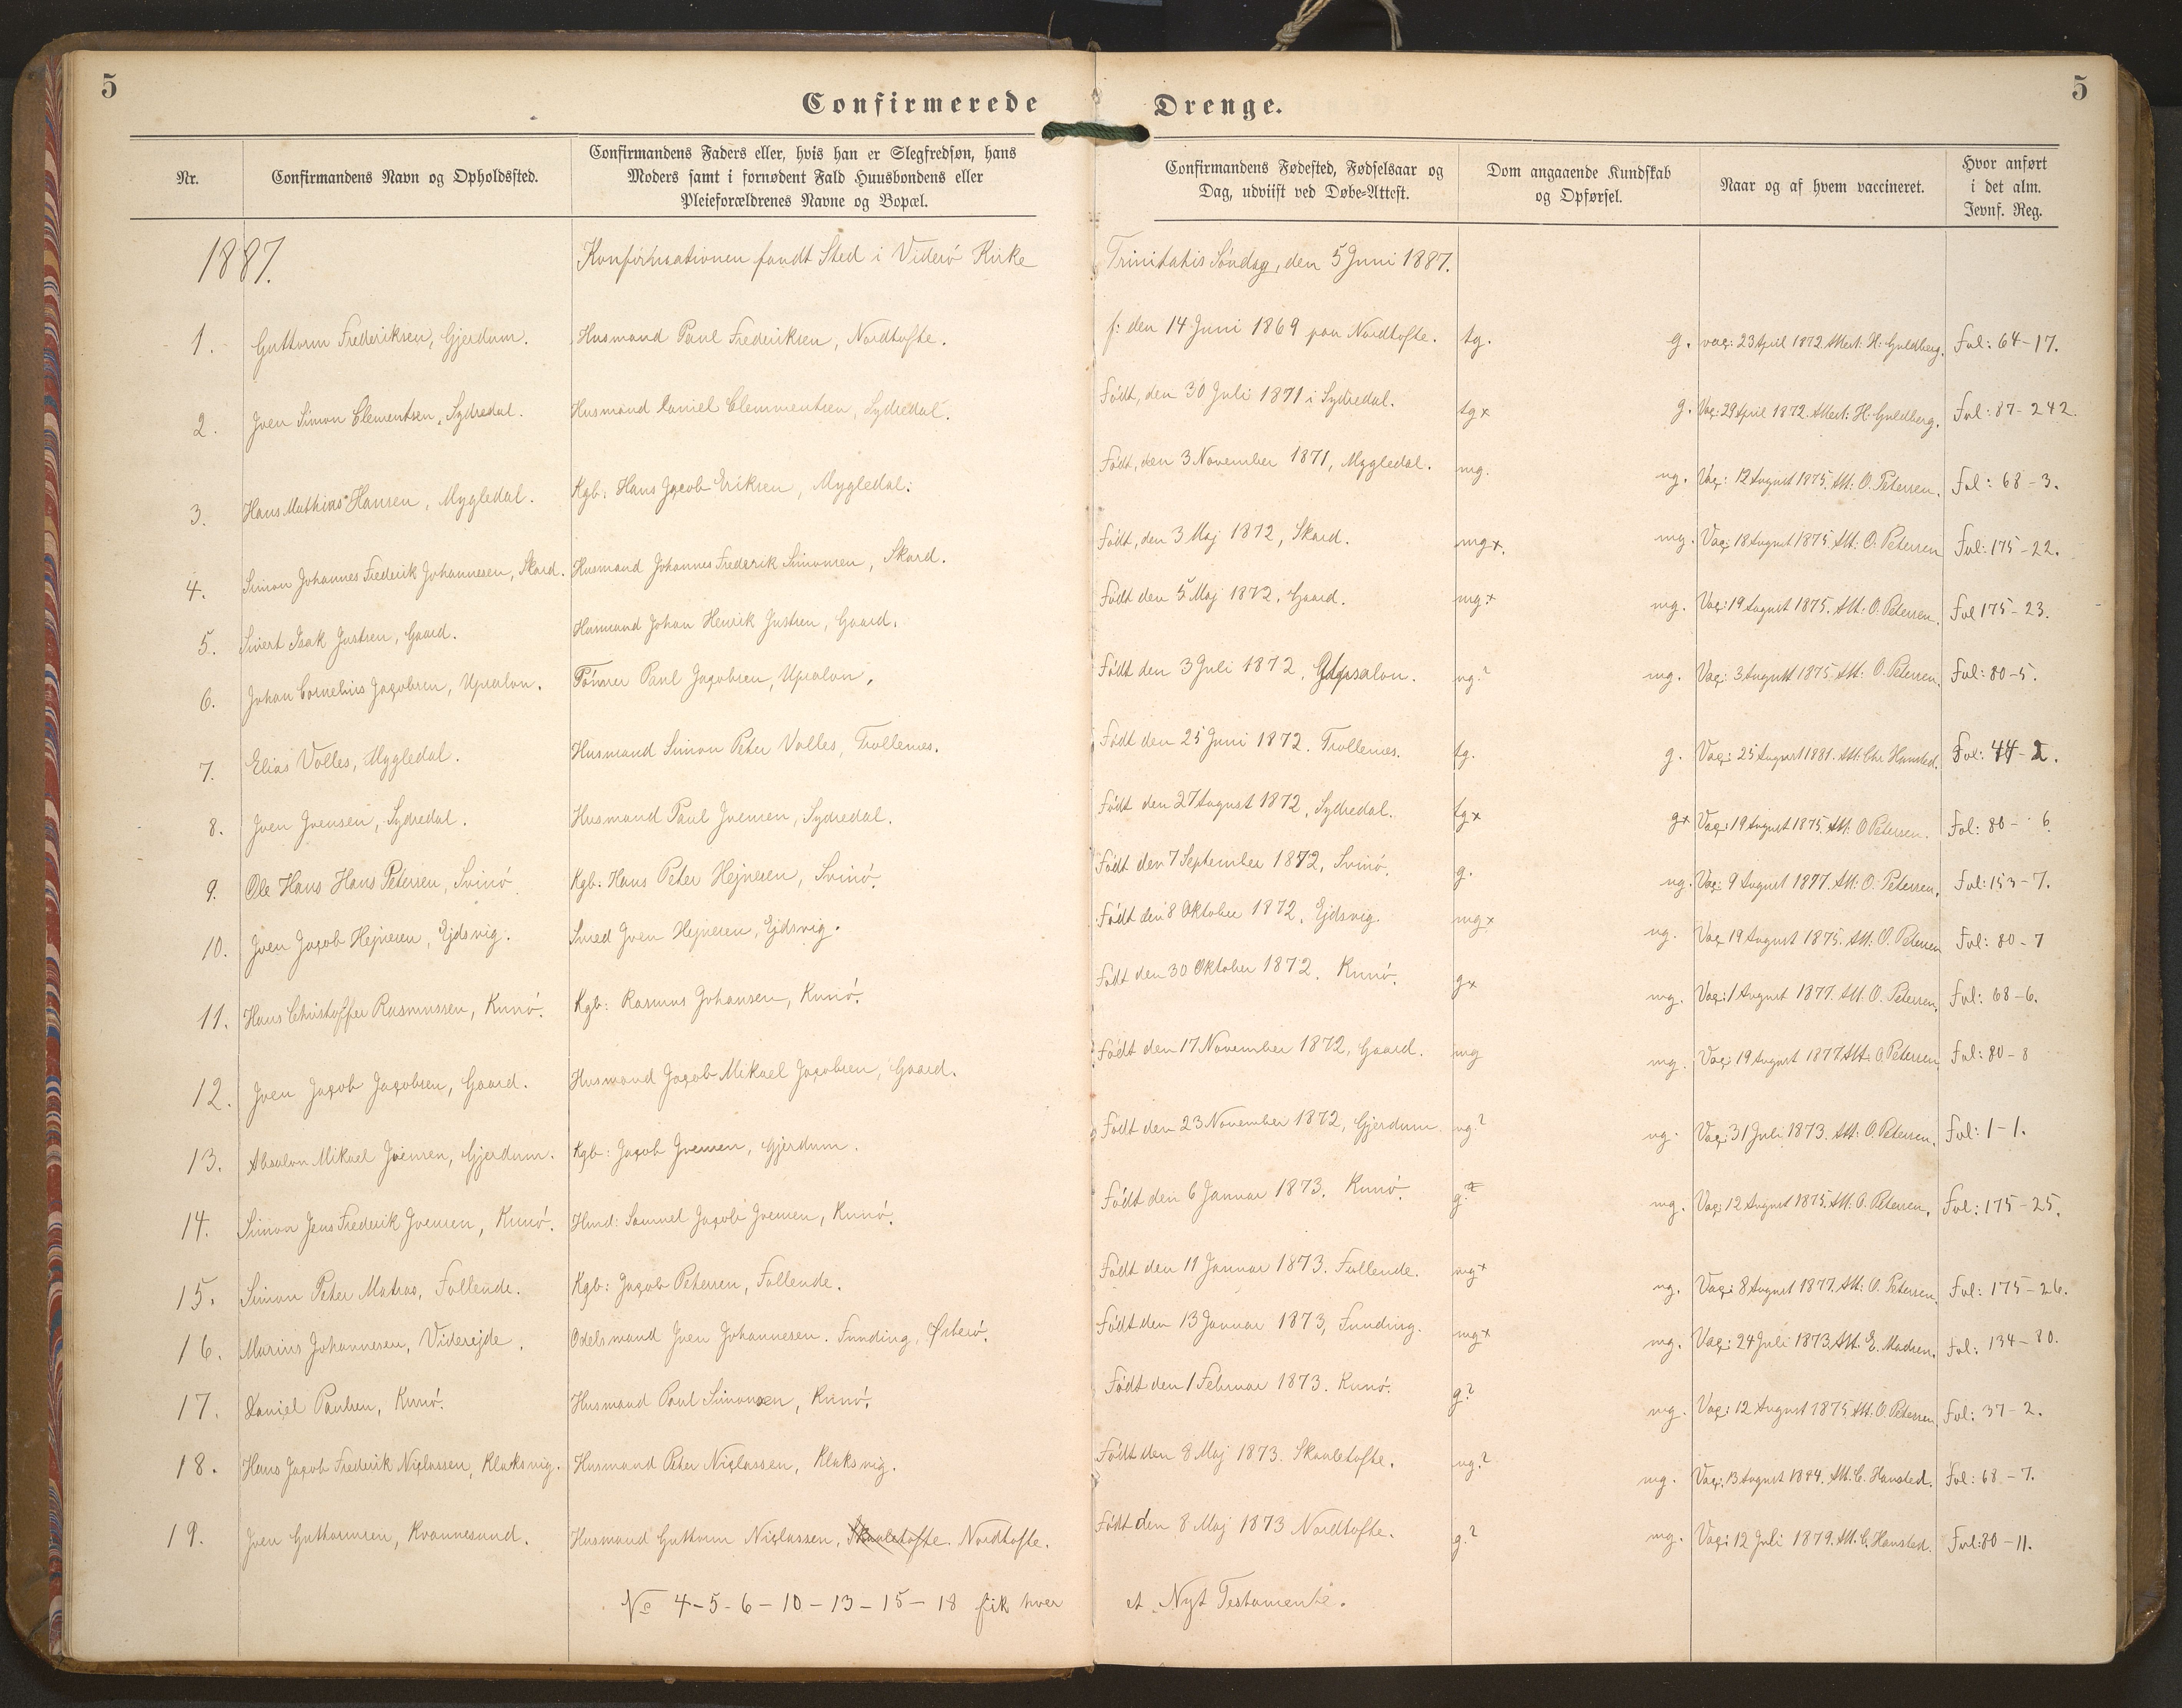 5
Confirmerede Drenge.
5
Nr.
Confirmandens Navn og Opholdssted.
Confirmandens Faders eller, hvis han er Slegfredsøn, hans
Moders samt i fornødent Fald Huusbondens eller
Pleieforældrenes Navne og Bopæl.
Confirmandens Fødested, Fødselsaar og
Dag, udviist ved Døbe-Attest.
Dom angaaende Kundskab
og Opførsel.
Naar og af hvem vaccineret.
Hvor anført
i det alm.
Jevnf. Reg.
1887. Konfirmationen fandt Sted i Viderö Kirke Trinitatis Söndag, den 5 Juni 1887.
1. Guttorm Frederiksen, Gjerdum. Husmand Paul Frederiksen, Nordtofte. f: den 14 Juni 1869 paa Nordtofte. tg. g. vac: 23 April 1872. Attest: H: Guldberg. Fol: 64-17.
2. Joen Simon Clementsen, Sydredal. Husmand Daniel Clemmentsen, Sydredal. Födt, den 30 Juli 1871 i Sydredal. tg x g. Vac: 29 April 1872. Attest: H. Guldberg. Fol: 87-242.
3. Hans Mathias Hansen, Mygledal. Kgb: Hans Jacob Eriksen, Mygledal. Födt, den 3 November 1871, Mygledal. mg. ug. Vac: 12 August 1875. Att: O. Petersen. Fol: 68-3.
4. Simon Johannes Frederik Johannesen, Skard. Husmand Johannes Frederik Simonsen, Skard. Födt, den 3 Maj 1872, Skard. mg x. mg. Vac: 18 August 1875. Att: O. Petersen Fol: 175-22.
5. Sivert Isak Justsen, Gaard. Husmand Johan Henrik Justsen, Gaard. Födt den 5 Maj 1872, Gaard. mg x mg. Vac: 19 August 1875. Att: O. Petersen. Fol 175-23.
6. Johan Cornelius Jacobsen, Upsalon. Tömrer Paul Jacobsen, Upsalon. Födt den 3 Juli 1872, Upsalon. ug? mg. Vac: 3 August 1875. Att: O. Petersen. Fol: 80-5.
7. Elias Volles, Mygledal. Husmand Simon Peter Volles, Trollenes. Födt den 25 Juni 1872. Trollenes. tg. g. Vac: 25 August 1881. Att: Chr Hansted. Fol: 44-2.
8. Joen Joensen, Sydredal. Husmand Paul Joensen, Sydredal. Födt den 27 August 1872, Sydredal. tg x g x Vac: 19 August 1875. Att: O Petersen. Fol: 80-6.
9. Ole Hans Hans Petersen, Svinö. Kgb: Hans Peter Hejnesen, Svinö. Födt den 7 September 1872, Svinö. g. ug. Vac: 9 August 1877. Att: O. Petersen. Fol: 153-7.
10. Joen Jacob Hejnesen, Ejdsvig. Smed Joen Hejnesen, Ejdsvig. Födt den 8 Oktober 1872, Ejdsvig. mg x ug. Vac 19 August 1875. Att: O. Petersen Fol: 80-7
11. Hans Christoffer Rasmussen, Kunö. Kgb: Rasmus Johansen, Kunö. Födt den 30 Oktober 1872. Kunö. g x mg. Vac: 1 August 1877. Att. O. Petersen. Fol: 68-6.
12. Joen Jacob Jacobsen, Gaard. Husmand Jacob Mikael Jacobsen, Gaard. Födt den 17 November 1872, Gaard. mg mg. Vac: 19 August 1877. Att: O Petersen Fol: 80-8
13. Absalon Mikael Joensen, Gjerdum. Kgb: Jacob Joensen, Gjerdum. Födt den 23 November 1872, Gjerdum. ug? ug. Vac: 31 Juli 1873. Att: O. Petersen. Fol: 1-1.
14. Simon Jens Frederik Joensen, Kunö. Husd: Samuel Jacob Joensen, Kunö. Födt den 6 Januar 1873. Kunö. g? mg. Vac: 12 August 1875. Att: O. Petersen. Fol: 175-25.
15. Simon Peter Matras, Follende. Kgb: Jacob Petersen, Follende. Födt den 11 Januar 1873. Follende. mg x ug. Vac: 8 August 1877. Att: O. Petersen. Fol: 175-26.
16. Marius Johannesen, Viderejde. Odelsmand Joen Johannesen. Funding, Østerö. Födt den 13 Januar 1873, Funding. mg x mg. Vac: 24 Juli 1873. Att: E. Madsen. Fol: 134-80.
17. Daniel Paulsen, Kunö. Husmand Paul Simonsen, Kunö. Födt den 1 Februar 1873. Kunö. g? mg. Vac: 12 August 1875. Att: O. Petersen. Fol: 37-2.
18. Hans Jacob Frederik Niclassen, Klaksvig. Husmand Peter Niclassen, Klaksvig. Födt den 8 Maj 1873. Skaaletofte. ug? mg. Vac: 13 August 1884. Att. C. Hansted. Fol: 68-7.
19. Joen Guttormsen, Kvannesund. Husmand Guttorm Niclassen, Skaaletofte. Nordtofte. Födt den 8 Maj 1873 Nordtofte. g? mg. Vac: 12 Juli 1879. Att. C. Hansted. Fol: 80-11.
No 4-5-6-10-13-15-18 fik hver et Nyt Testamente.